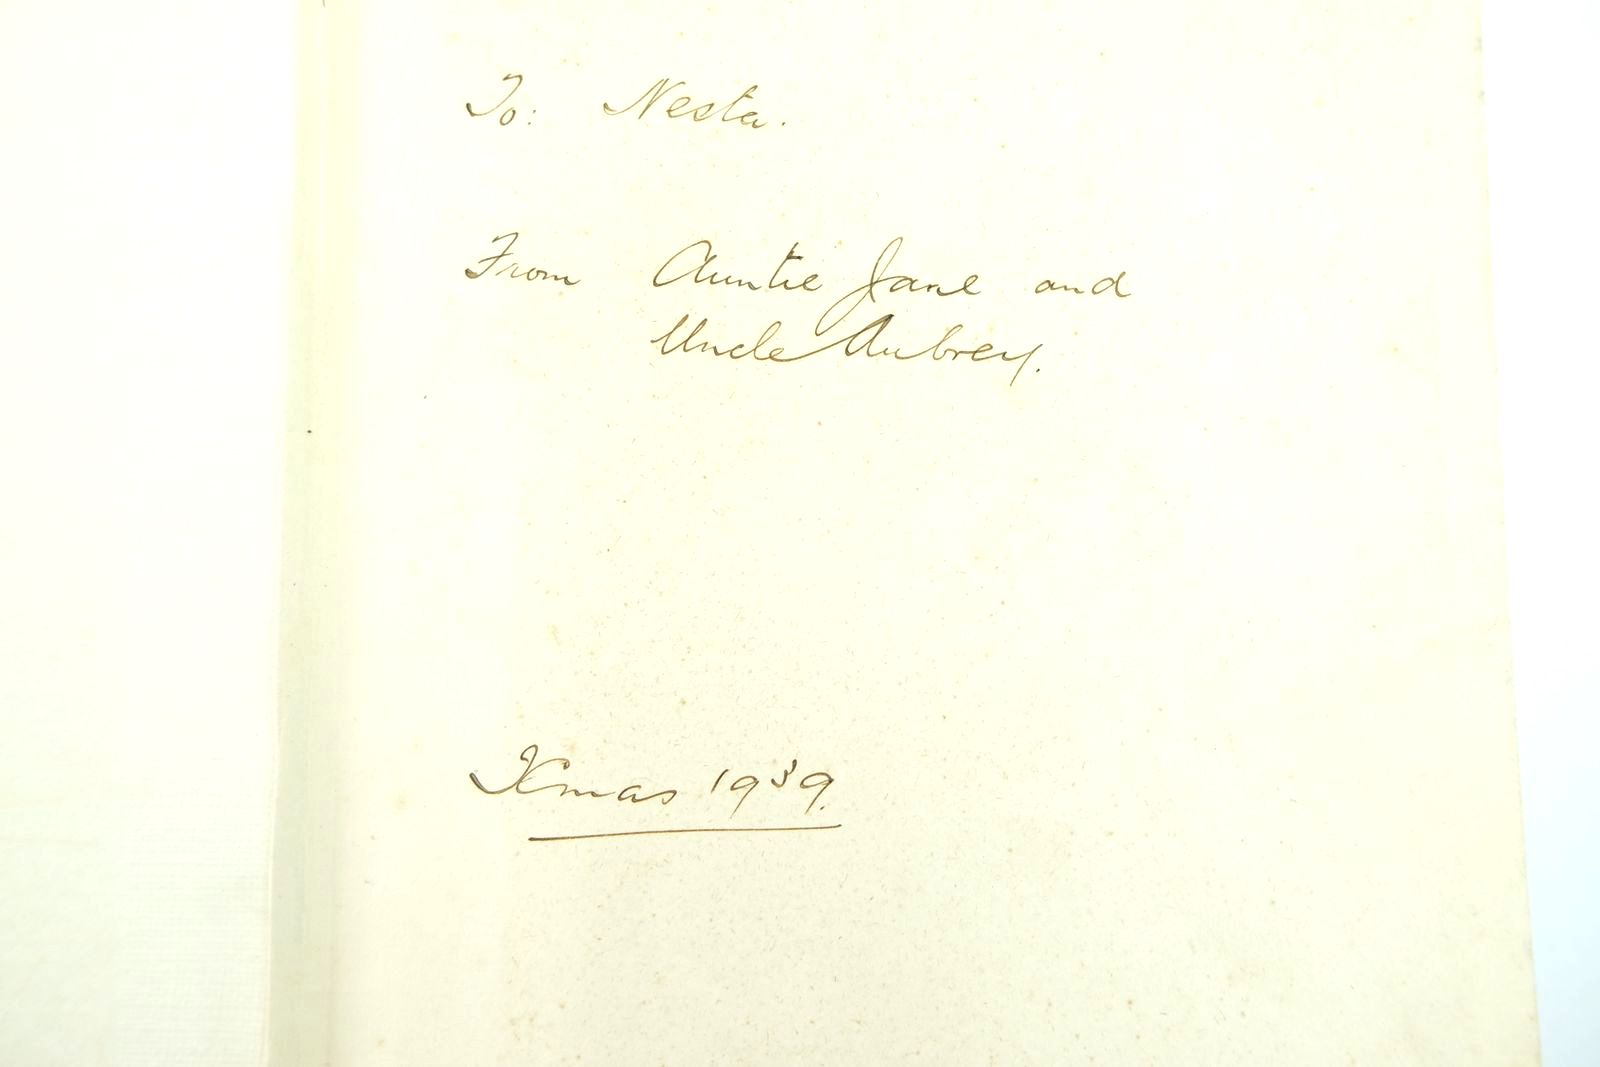 To: Nesta.
From Auntie Jane and
Uncle Aubrey.
Xmas 1939.